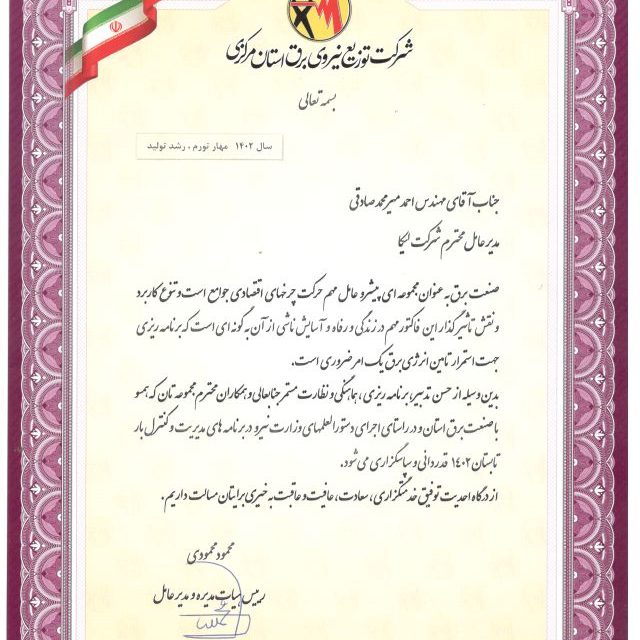 شرکت توزیع نیروی برق استان مرکزی
بسمه تعالی
سال ۱۴۰۲ مهار تورم ، رشد تولید
جناب آقای مهندس احمد میرمحمدصادقی
مدیرعامل محترم شرکت لیکا
صنعت برق به عنوان مجموعه ای پیشرو عامل مهم حرکت چرخهای اقتصادی جوامع است و تنوع کاربرد
و نقش تأثیرگذار این فاکتور مهم در زندگی و رفاه و آسایش ناشی از آن به گونه ای است که برنامه ریزی
جهت استمرار تامین انرژی برق یک امر ضروری است.
بدین وسیله از حسن تدبیر، برنامه ریزی، هماهنگی و نظارت مستمر جنابعالی و همکاران محترم مجموعه تان که همسو
با صنعت برق استان و در راستای اجرای دستورالعملهای وزارت نیرو در برنامه های مدیریت و کنترل بار
تابستان ۱۴۰۲ قدردانی و سپاسگزاری می شود.
از درگاه احدیت توفیق خدمتگزاری، سعادت، عافیت و عاقبت به خیری برایتان مسالت داریم.
محمود محمودی
رییس هیات مدیره و مدیرعامل